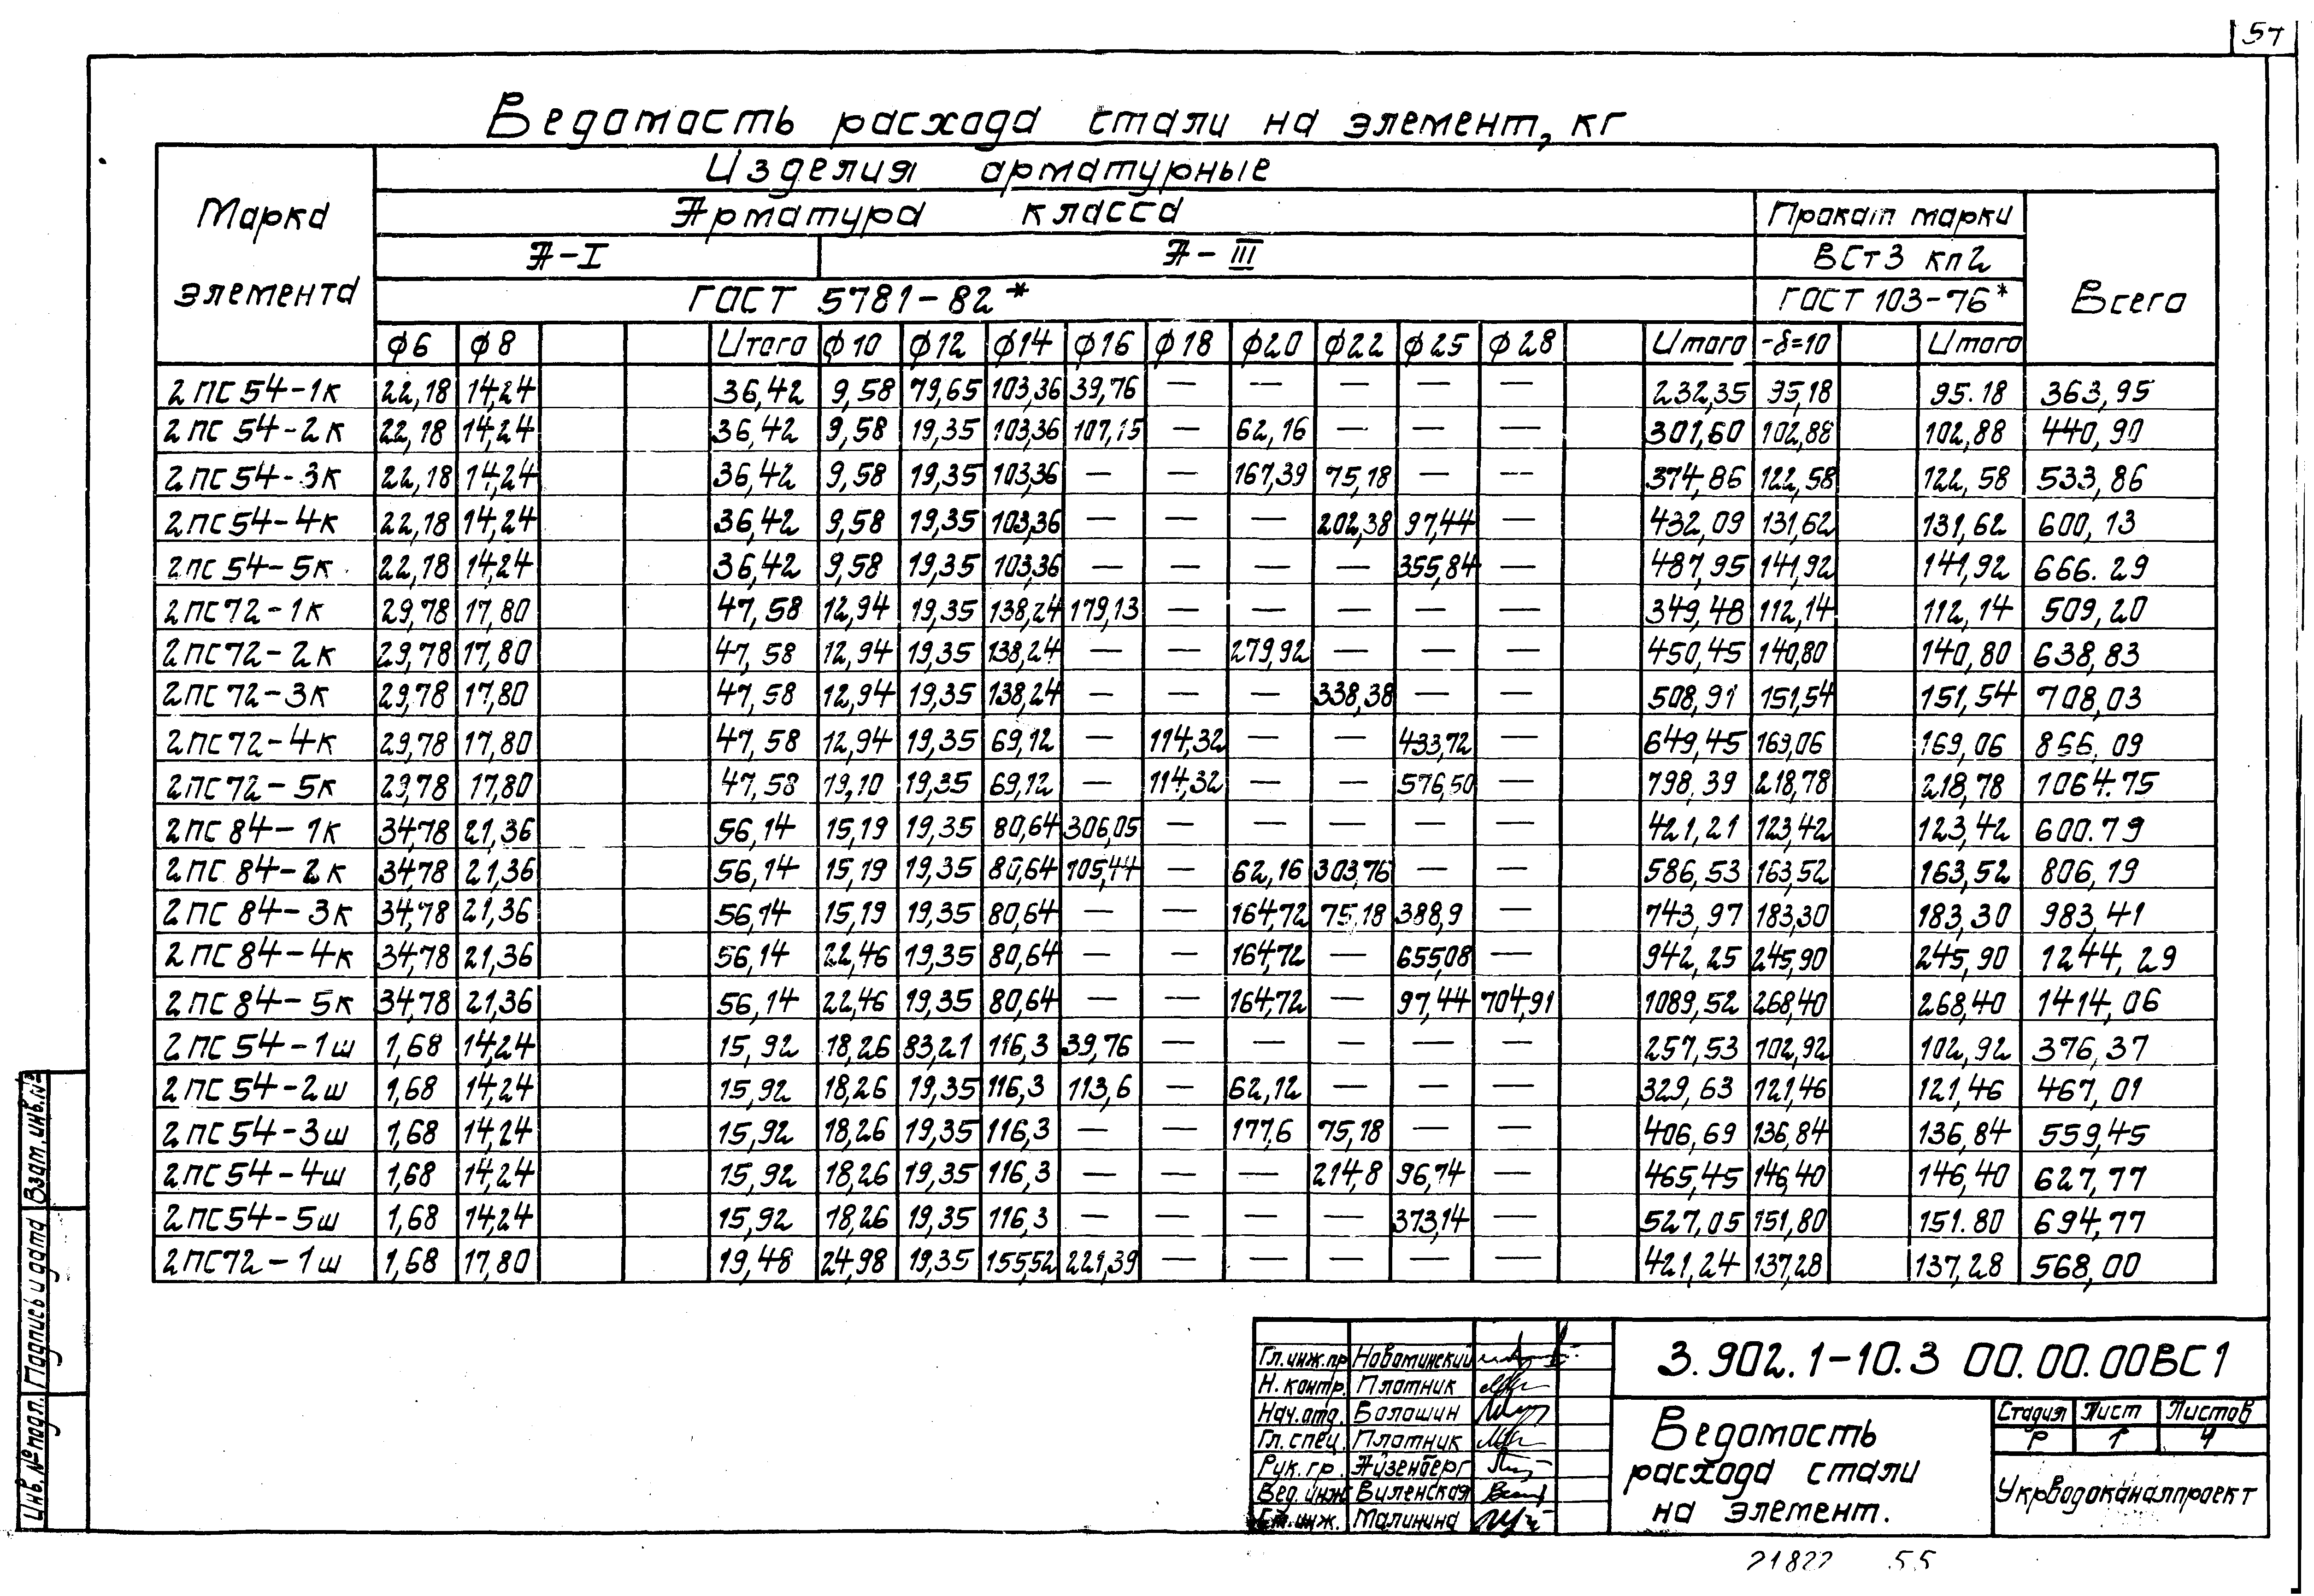 54
Ведомость расхода стали на элемент, кг
Марка элемента
Изделия арматурные
Арматура класса
Прокат марки
Всего
А-I
А-III
ВСт3 кп2
ГОСТ 5781-82*
ГОСТ 103-76*
ф6 ф8 Итого ф10 ф12 ф14 ф16 ф18 ф20 ф22 ф25 ф28 Итого -δ=10 Итого
2ПС54-1к 22,18 14,24 36,42 9,58 79,65 103,36 39,76 — — — — — 232,35 95,18 95.18 363,95
2ПС54-2к 22,18 14,24 36,42 9,58 19,35 103,36 107,15 — 62,16 — — — 301,60 102,88 102,88 440,90
2ПС54-3к 22,18 14,24 36,42 9,58 19,35 103,36 — — 167,39 75,18 — — 374,86 122,58 122,58 533,86
2ПС54-4к 22,18 14,24 36,42 9,58 19,35 103,36 — — — 202,38 97,44 — 432,09 131,62 131,62 600,13
2ПС54-5к 22,18 14,24 36,42 9,58 19,35 103,36 — — — — 355,84 — 487,95 141,92 141,92 666.29
2ПС72-1к 29,78 17,80 47,58 12,94 19,35 138,24 179,13 — — — — — 349,48 112,14 112,14 509,20
2ПС72-2к 29,78 17,80 47,58 12,94 19,35 138,24 — — 279,92 — — — 450,45 140,80 140,80 638,83
2ПС72-3к 29,78 17,80 47,58 12,94 19,35 138,24 — — — 338,38 — — 508,91 151,54 151,54 708,03
2ПС72-4к 29,78 17,80 47,58 12,94 19,35 69,12 — 114,32 — — 433,72 — 649,45 169,06 169,06 866.09
2ПС72-5к 29,78 17,80 47,58 19,10 19,35 69,12 — 114,32 — — 576,50 — 798,39 218,78 218,78 1064.75
2ПС84-1к 34,78 21,36 56,14 15,19 19,35 80,64 306,05 — — — — — 421,21 123,42 123,42 600.79
2ПС84-2к 34,78 21,36 56,14 15,19 19,35 80,64 105,44 — 62,16 303,76 — — 586,53 163,52 163,52 806,19
2ПС84-3к 34,78 21,36 56,14 15,19 19,35 80,64 — — 164,72 75,18 388,9 — 743,97 183,30 183,30 983,41
2ПС84-4к 34,78 21,36 56,14 22,46 19,35 80,64 — — 164,72 — 655,08 — 942,25 245,90 245,90 1244,29
2ПС84-5к 34,78 21,36 56,14 22,46 19,35 80,64 — — 164,72 — 97,44 704,91 1089,52 268,40 268,40 1414,06
2ПС54-1ш 1,68 14,24 15,92 18,26 83,21 116,3 39,76 — — — — — 257,53 102,92 102,92 376,37
2ПС54-2ш 1,68 14,24 15,92 18,26 19,35 116,3 113,6 — 62,12 — — — 329,63 121,46 121,46 467,01
2ПС54-3ш 1,68 14,24 15,92 18,26 19,35 116,3 — — 177,6 75,18 — — 406,69 136,84 136,84 559,45
2ПС54-4ш 1,68 14,24 15,92 18,26 19,35 116,3 — — — 214,8 96,74 — 465,45 146,40 146,40 627,77
2ПС54-5ш 1,68 14,24 15,92 18,26 19,35 116,3 — — — — 373,14 — 527,05 151,80 151.80 694,77
2ПС72-1ш 1,68 17,80 19,48 24,98 19,35 155,52 221,39 — — — — — 421,24 137,28 137,28 568,00
Инв.№подл. Подпись и дата Взам.инв.№
Гл.инж.пр Новоминский
Н.контр. Плотник
Нач.отд. Болошин
Гл.спец. Плотник
Рук.гр. Айзенберг
Вед.инж Виленская
Ст.инж. Малинина
3.902.1-10.3 00.00.00ВС1
Ведомость расхода стали на элемент.
Стадия Лист Листов
Р 1 4
Укрводоканалпроект
21822 55